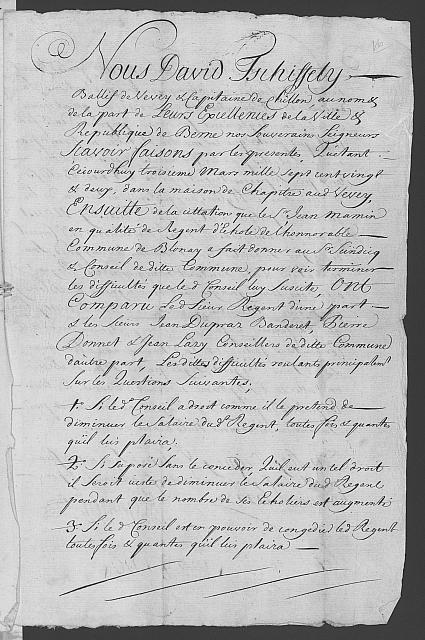 Nous David Tschiffely
Ballif de Vevey & Capitaine de Chillon, au nom &
de la part de Leurs Excellences de la Ville &
Republique de Berne nos Souverains Seigneurs
Scavoir faisons par les presentes, Qu'Etant
Cejourd'huy troisieme Mars mille sept cent vingt
& deux, dans la maison de Chapitre aud Vevey,
Ensuitte de la cittation que le Sr Jean Mamin
en qualité de Regent d'Ehole de l'honnorable
Commune de Blonay a fait donner au Sr Scindicq
& Conseil de ditte Commune, pour voir terminer
les difficultés que led Conseil luy Suscite, Ont
Comparu Led Sieur Regent d'une part
& les Sieurs Jean Dupraz Banderet, Pierre
Bonnet & Jean Lazy Conseillers de ditte Commune
d'autre part, Lesdittes difficultés roulants principalemt
Sur les Questions Suivantes,
1° Si led Conseil a droit comme il le pretend de
diminuer le Salaire dud Regent, toutes fois & quantes
qu'il luis plaira,
2° Si Suposé Sans le conceder, Qu'il eut un tel droit
il Seroit juste de diminuer le Salaire dud Regent
pendant que le nombre de Ses Echoliers est augmenté
3° Si led Conseil est en pouvoir de congedier led Regent
toutes fois & quantes qu'il luis plaira